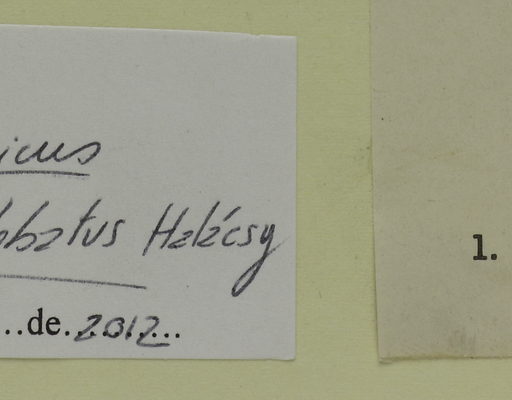 icus
lobatus Halácsy
...de. 2012...
1.